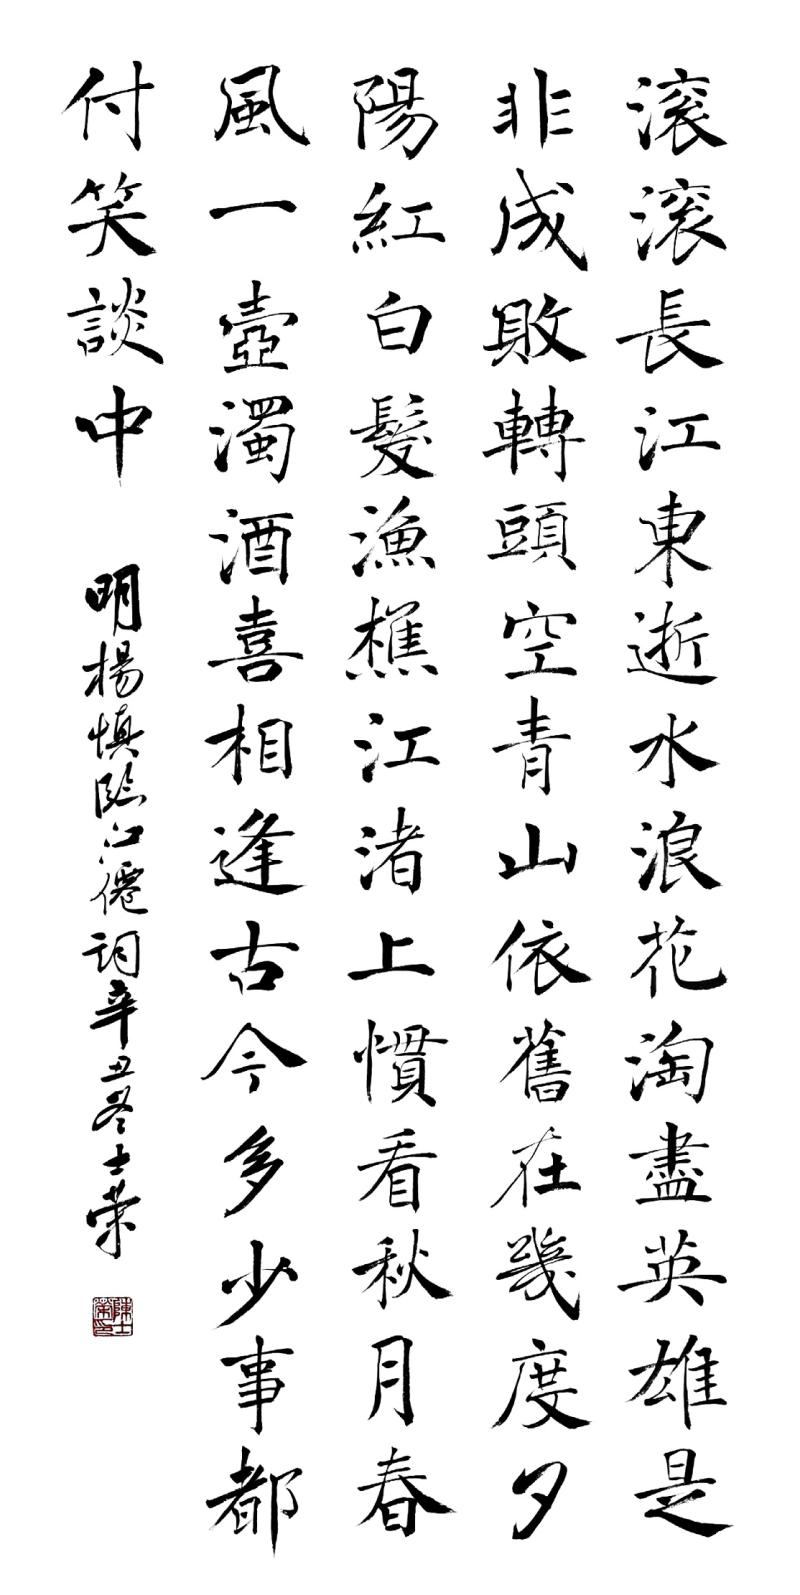 滚滚長江東逝水浪花淘盡英雄是
非成敗轉頭空青山依舊在幾度夕
陽紅白髮漁樵江渚上慣看秋月春
風一壺濁酒喜相逢古今多少事都
付笑談中
明楊慎臨江僊詞辛丑冬士榮
陳士榮印